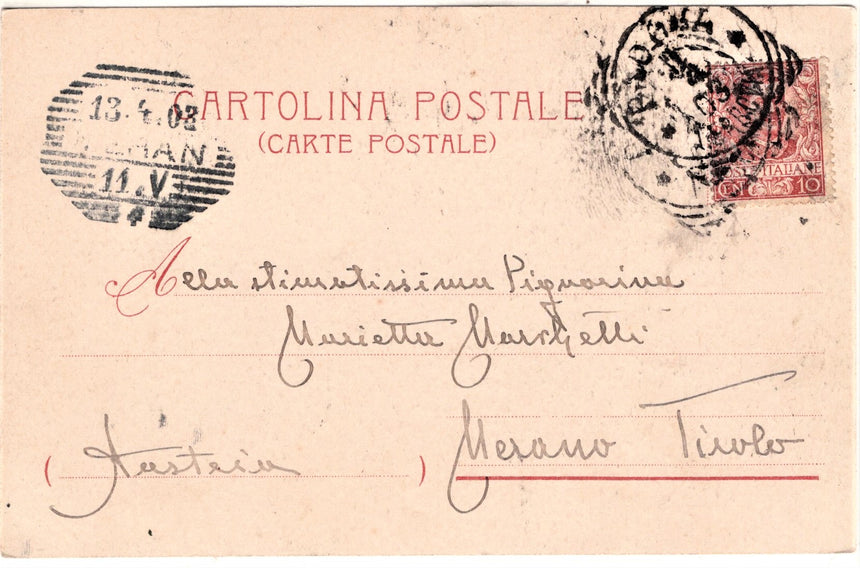 CARTOLINA POSTALE
(CARTE POSTALE)
13.4.03
11.V
4
POSTE ITALIANE
CEN 10
Alla stimatissima Signorina
Marietta Marchetti
Merano Tirolo
(Austria)